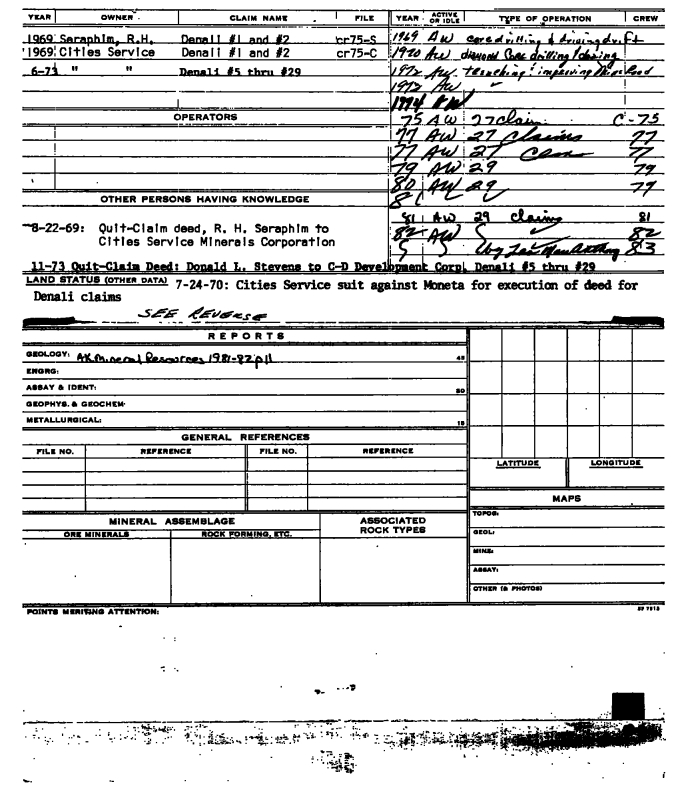 YEAR OWNER CLAIM NAME FILE YEAR ACTIVE OR IDLE TYPE OF OPERATION CREW
1969 Seraphim, R.H. Denali #1 and #2 cr75-S 1969 AW core drilling & driving drift
1969 Cities Service Denali #1 and #2 cr75-C 1970 AW diamond core drilling
6-73 " " Denali #5 thru #29 1972 AW trenching improving Road
1972 AW
1974 AW
OPERATORS
75 AW 27 claim C-75
77 AW 27 Claims 77
77 AW 27 77
79 AW 29 79
80 AW 29 79
OTHER PERSONS HAVING KNOWLEDGE
81 AW 29 Claims 81
8-22-69: Quit-Claim deed, R. H. Seraphim to 82 AW 82
Cities Service Minerals Corporation 83
11-73 Quit-Claim Deed: Donald L. Stevens to C-D Development Corp. Denali #5 thru #29
LAND STATUS (OTHER DATA) 7-24-70: Cities Service suit against Moneta for execution of deed for
Denali claims
SEE REVERSE
REPORTS
GEOLOGY: AK Mineral Resources 1981-82 p11
ENGRG:
ASSAY & IDENT:
GEOPHYS. & GEOCHEM.
METALLURGICAL:
GENERAL REFERENCES
FILE NO. REFERENCE FILE NO. REFERENCE
LATITUDE LONGITUDE
MAPS
TOPOG:
MINERAL ASSEMBLAGE ASSOCIATED ROCK TYPES
ORE MINERALS ROCK FORMING, ETC.
GEOL:
MINE:
ASSAY:
OTHER (& PHOTOS)
POINTS MERITING ATTENTION: